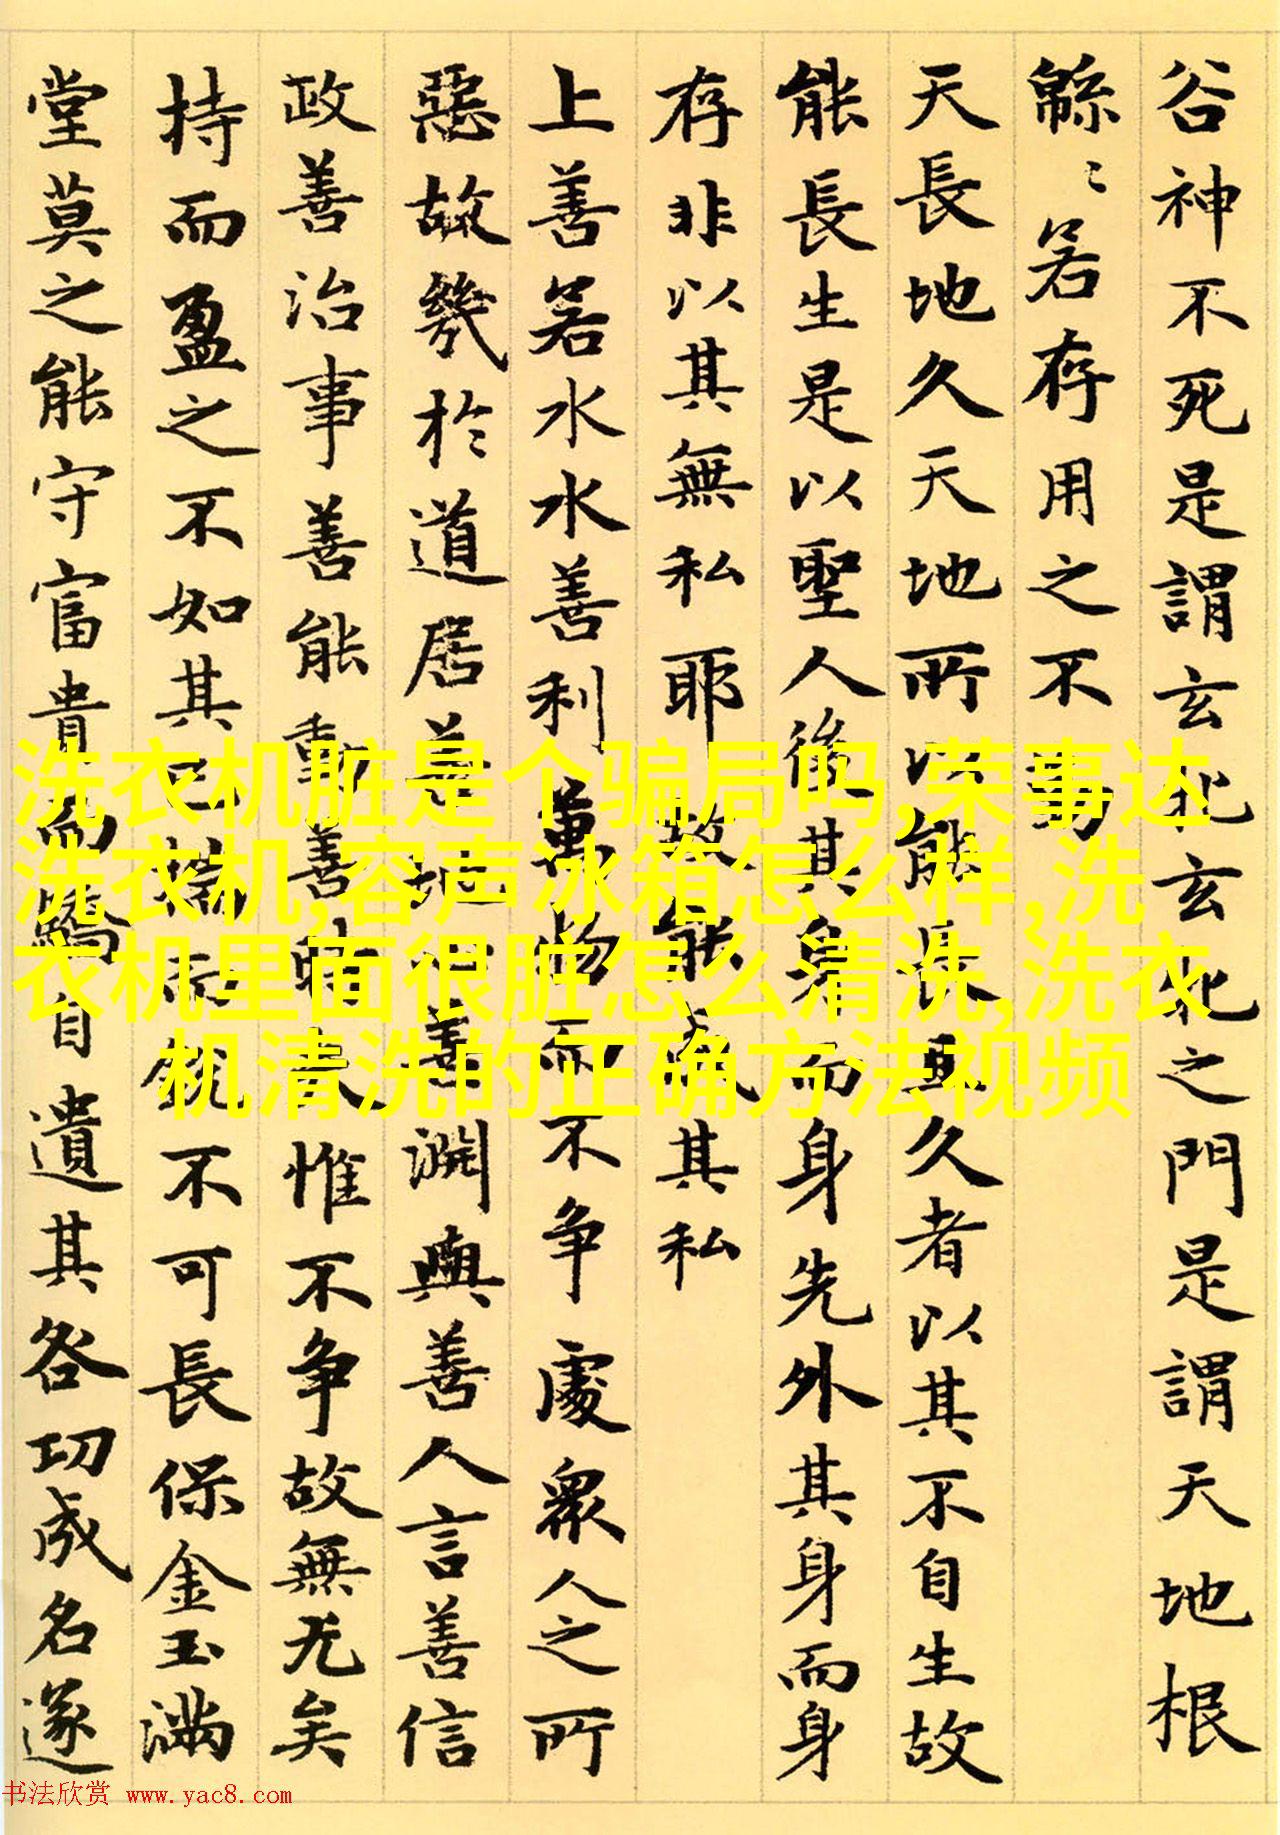 谷神不死是謂玄牝玄牝之門是謂天地根
緜〻若存用之不勤
天長地久天地所以能長且久者以其不自生故
能長生是以聖人後其身而身先外其身而身
存非以其無私耶故能成其私
上善若水水善利萬物而不争處衆人之所
惡故幾於道居善地心善淵與善人言善信
政善治事善能動善時夫惟不争故無尤矣
持而盈之不如其已揣而銳不可長保金玉滿
堂莫之能守富貴而驕自遺其咎功成名遂
洗衣机脏是个骗局吗,荣事达
洗衣机,容声冰箱怎么样,洗
衣机里面很脏怎么清洗,洗衣
机清洗的正确方法视频
书法欣赏 www.yac8.com